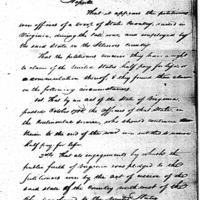 Report
That it appears the petitioners
were officers of a corps of State Cavalry, raised in
Virginia, during the late war, and employed by
the said State in the Illinois Country.
That the petitioners conceive they have a right
to claim of the United States half pay for life or
a commutation thereof, & they found their claim
on the following circumstances.
1st That by an act of the State of Virginia
passed October the officers of this State in
the Continental service, who should continue
therein to the end of the war were entitled to receive
half pay for life.
2nd That as engagements by which the
public faith of Virginia was pledged to the
petitioners were by the act of cession of the
said state of the Country north west of the
to the United States